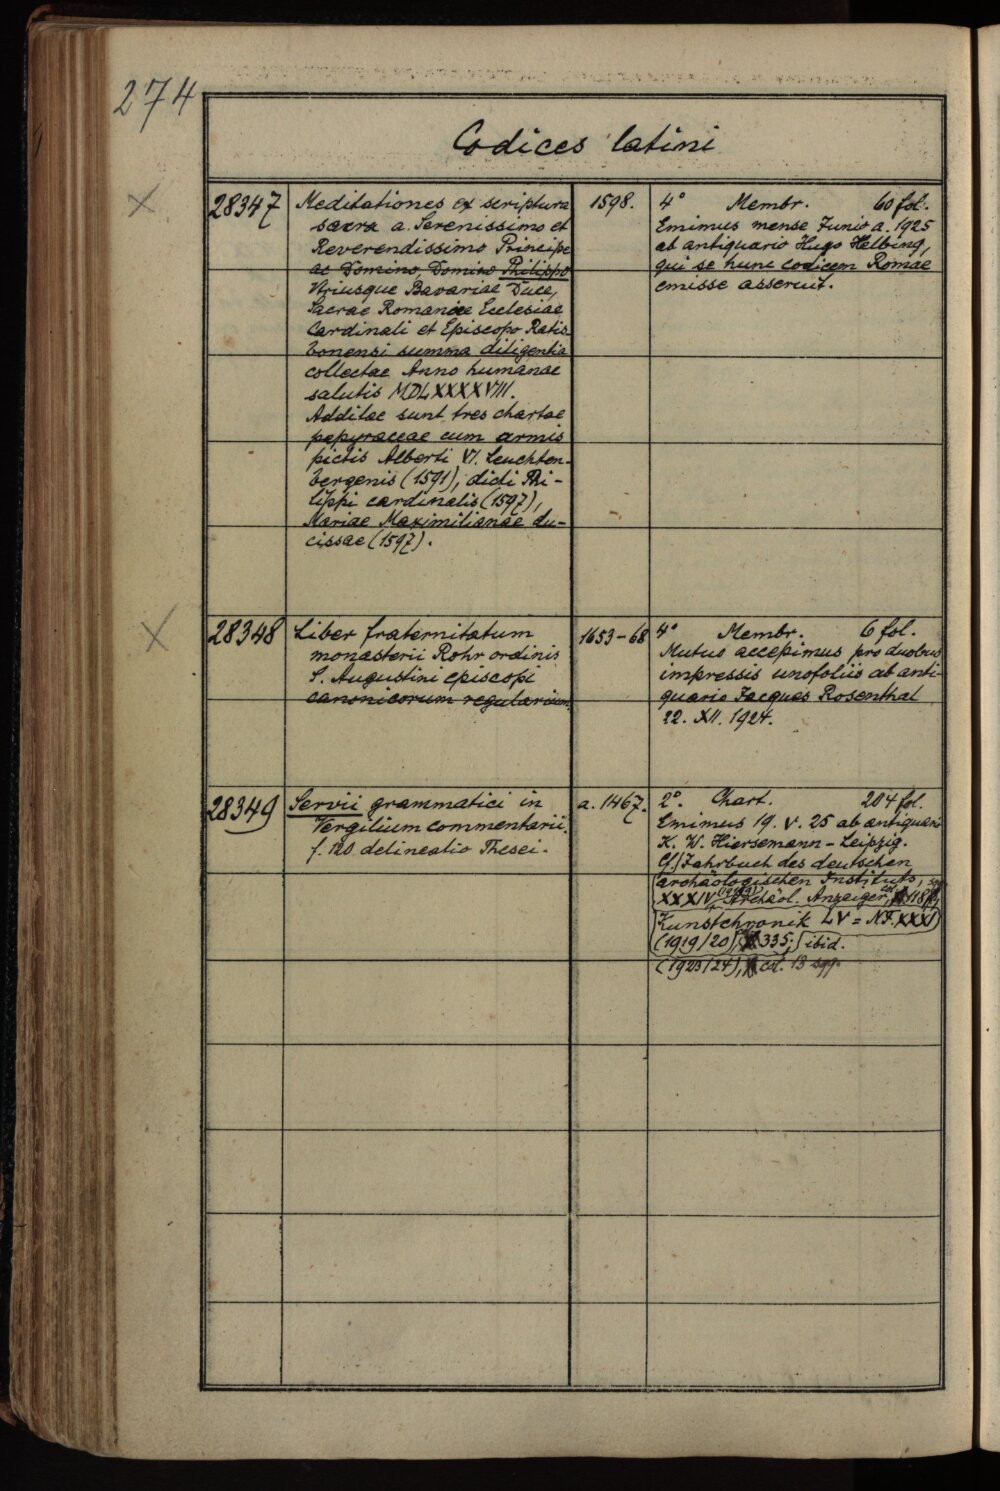 274
Codices latini
28347
Meditationes ex scriptura
sacra a. Serenissimo et
Reverendissimo Principe
ac Domino, Domino Philippo
Utriusque Bavariae Duce,
Sacrae Romanae Ecclesiae
Cardinali et Episcopo Ratis
bonensi summa diligentia
collectae Anno humanae
salutis MDLXXXXVIII.
Additae sunt tres chartae
papyraceae cum armis
pictis Alberti VI. Leuchten-
bergenis (1591), dicti Phi-
lippi cardinalis (1597),
Mariae Maximilianae du-
cissae (1597).
1598.
4° Membr. 60 fol.
Emimus mense Junio a. 1925
ab antiquario Hugo Helbing,
qui se hunc codicem Romae
emisse asseruit.
28348
Liber fraternitatum
monasterii Rohr ordinis
S. Augustini episcopi
canonicorum regularium.
1653-68
4° Membr. 6 fol.
Mutuo accepimus pro duobus
impressis unofoliis ab anti-
quario Jacques Rosenthal
22. XII. 1924.
28349
Servii grammatici in
Vergilium commentarii.
f. 120 delineatio Thesei.
a. 1467.
2°. Chart. 204 fol.
Emimus 19. V. 25 ab antiquario
K. W. Hiersemann - Leipzig.
Cf. Jahrbuch des deutschen
archäologischen Instituts,
XXXIV Archäol. Anzeiger, col. 118
Kunstchronik LV = NF. XXXI
(1919/20), 335; ibid.
(1923/24), col. 13 sqq.